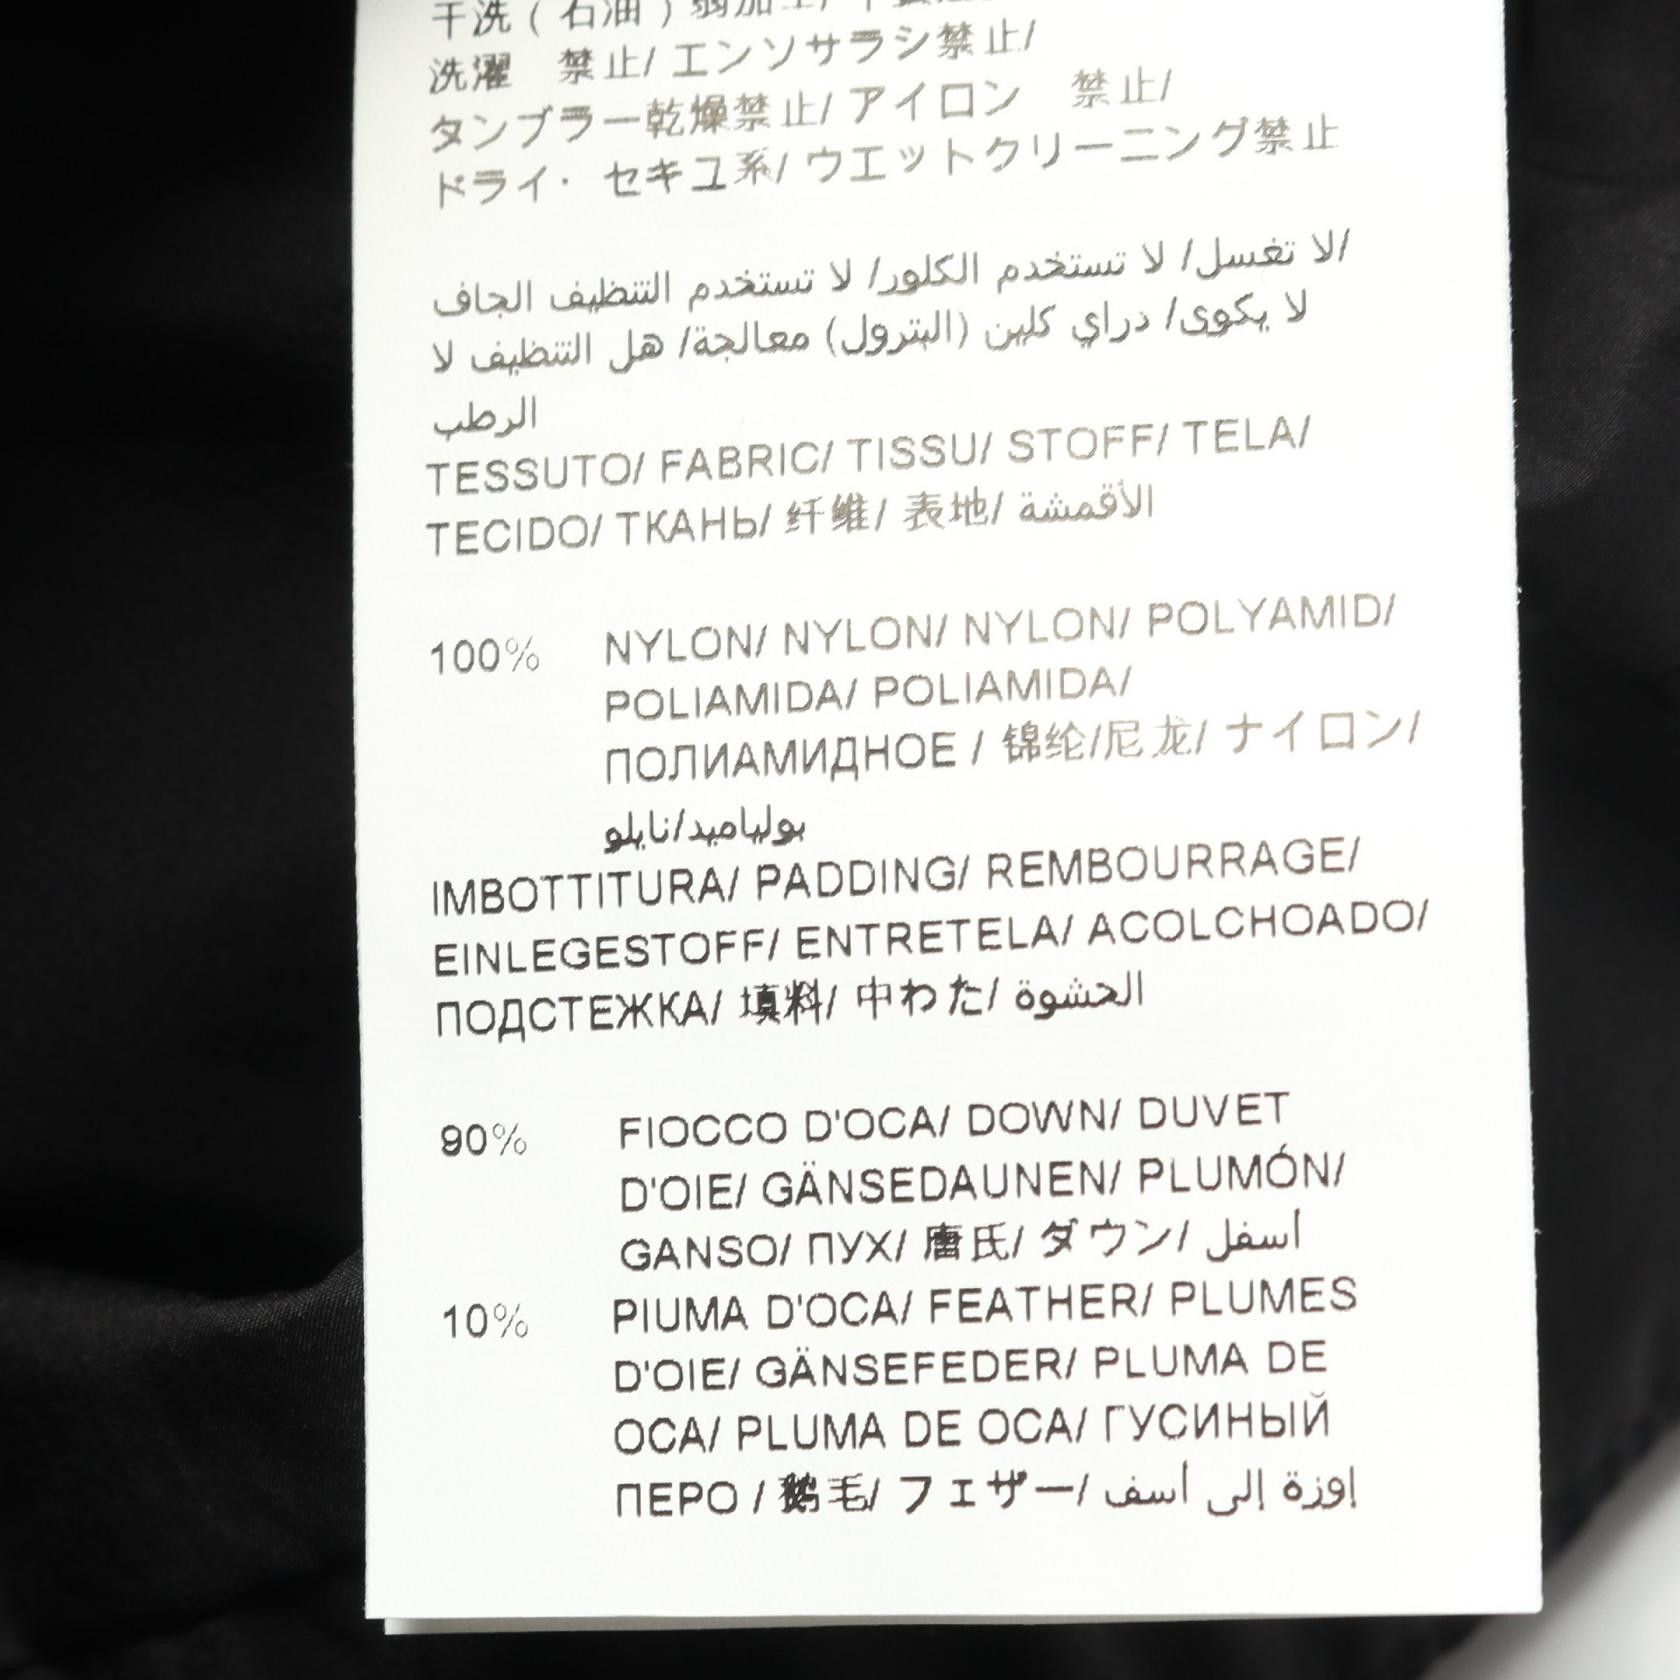 干洗 ( 石油 )
洗濯　禁止/ エンソサラシ禁止/
タンブラー乾燥禁止/ アイロン　禁止/
ドライ・ セキユ系/ ウエットクリーニング禁止
لا تغسل/ لا تستخدم الكلور/ لا تستخدم التنظيف الجاف/
لا يكوى/ دراي كلين (البترول) معالجة/ هل التنظيف لا
الرطب
TESSUTO/ FABRIC/ TISSU/ STOFF/ TELA/
TECIDO/ ТКАНЬ/ 纤维/ 表地/ الأقمشة
100% NYLON/ NYLON/ NYLON/ POLYAMID/
POLIAMIDA/ POLIAMIDA/
ПОЛИАМИДНОЕ / 锦纶/尼龙/ ナイロン/
بولياميد/نايلو
IMBOTTITURA/ PADDING/ REMBOURRAGE/
EINLEGESTOFF/ ENTRETELA/ ACOLCHOADO/
ПОДСТЕЖКА/ 填料/ 中わた/ الحشوة
90% FIOCCO D'OCA/ DOWN/ DUVET
D'OIE/ GÄNSEDAUNEN/ PLUMÓN/
GANSO/ ПУХ/ 唐氏/ ダウン/ أسفل
10% PIUMA D'OCA/ FEATHER/ PLUMES
D'OIE/ GÄNSEFEDER/ PLUMA DE
OCA/ PLUMA DE OCA/ ГУСИНЫЙ
ПЕРО / 鹅毛/ フェザー/ إوزة إلى أسف